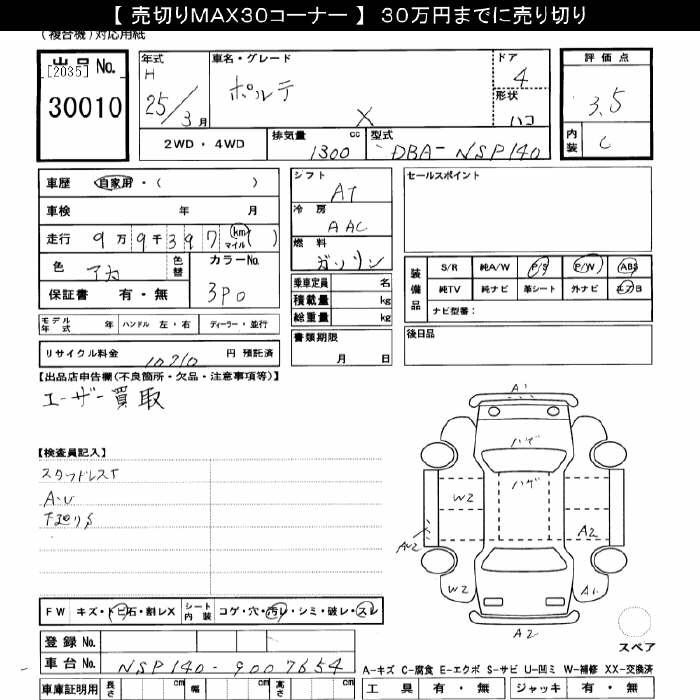 【 売切りMAX30コーナー 】 30万円までに売り切り
(複合機)対応用紙
出品 No.
[2035]
30010
年式 H 25/3月
車名・グレード ポルテ X
ドア 4
形状 ハコ
評価点 3.5
内装 C
2WD・4WD 排気量 1300 cc 型式 DBA-NSP140
車歴 自家用・( )
車検 年 月
走行 9万9千397 (km マイル)( )
色 アカ 色替 カラーNo. 3P0
保証書 有・無
シフト AT
冷房 AAC
燃料 ガソリン
乗車定員 名
積載量 kg
総重量 kg
セールスポイント
装備品 S/R 純A/W P/S P/W ABS
純TV 純ナビ 革シート 外ナビ エアB
ナビ型番:
モデル年式 年 ハンドル 左・右 ディーラー・並行
リサイクル料金 10710 円 預託済
書類期限 月 日
後日品
【出品店申告欄(不良箇所・欠品・注意事項等)】
ユーザー買取
【検査員記入】
スタッドレスT
A・U
下回りS
A1
ハゲ
ハゲ
W2
A2
AU2
W2
A1
A2
スペア
FW キズ・トビ石・割レX シート内装 コゲ・穴・汚レ・シミ・破レ・スレ
登録 No.
車台 No. NSP140-9007654
A-キズ C-腐食 E-エクボ S-サビ U-凹ミ W-補修 XX-交換済
車庫証明用 長さ cm 幅 cm 高さ cm
工具 有・無 ジャッキ 有・無